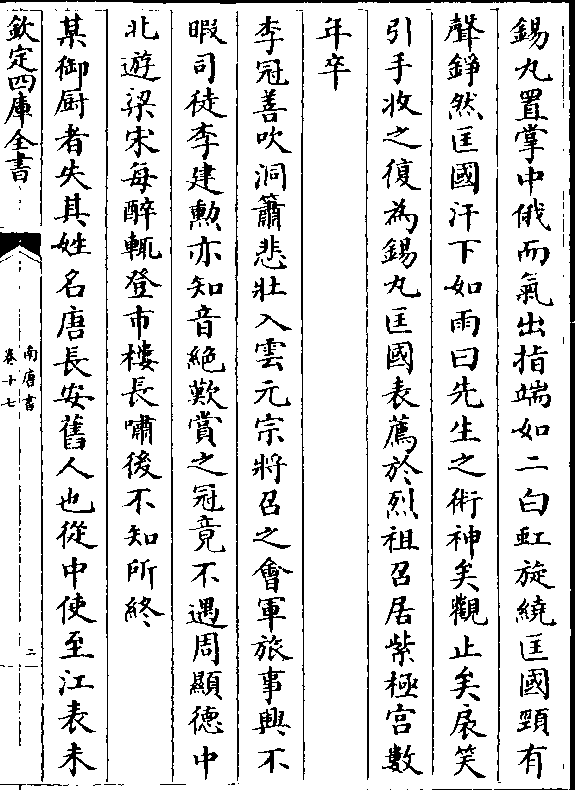 錫丸置掌中俄而氣出指端如二白虹旋繞匡國頸有
聲錚然匡國汗下如雨曰先生之術神矣觀止矣扆笑
引手收之復為錫丸匡國表薦於烈祖召居紫極宫數
年卒
李冠善吹洞簫悲壯入雲元宗將召之會軍旅事興不
暇司徒李建勲亦知音絶歎賞之冠竟不遇周顯德中
北遊梁宋每醉輒登市樓長嘯後不知所終
某御厨者失其姓名唐長安舊人也從中使至江表未
欽定四庫全書
南唐書
卷十七
三